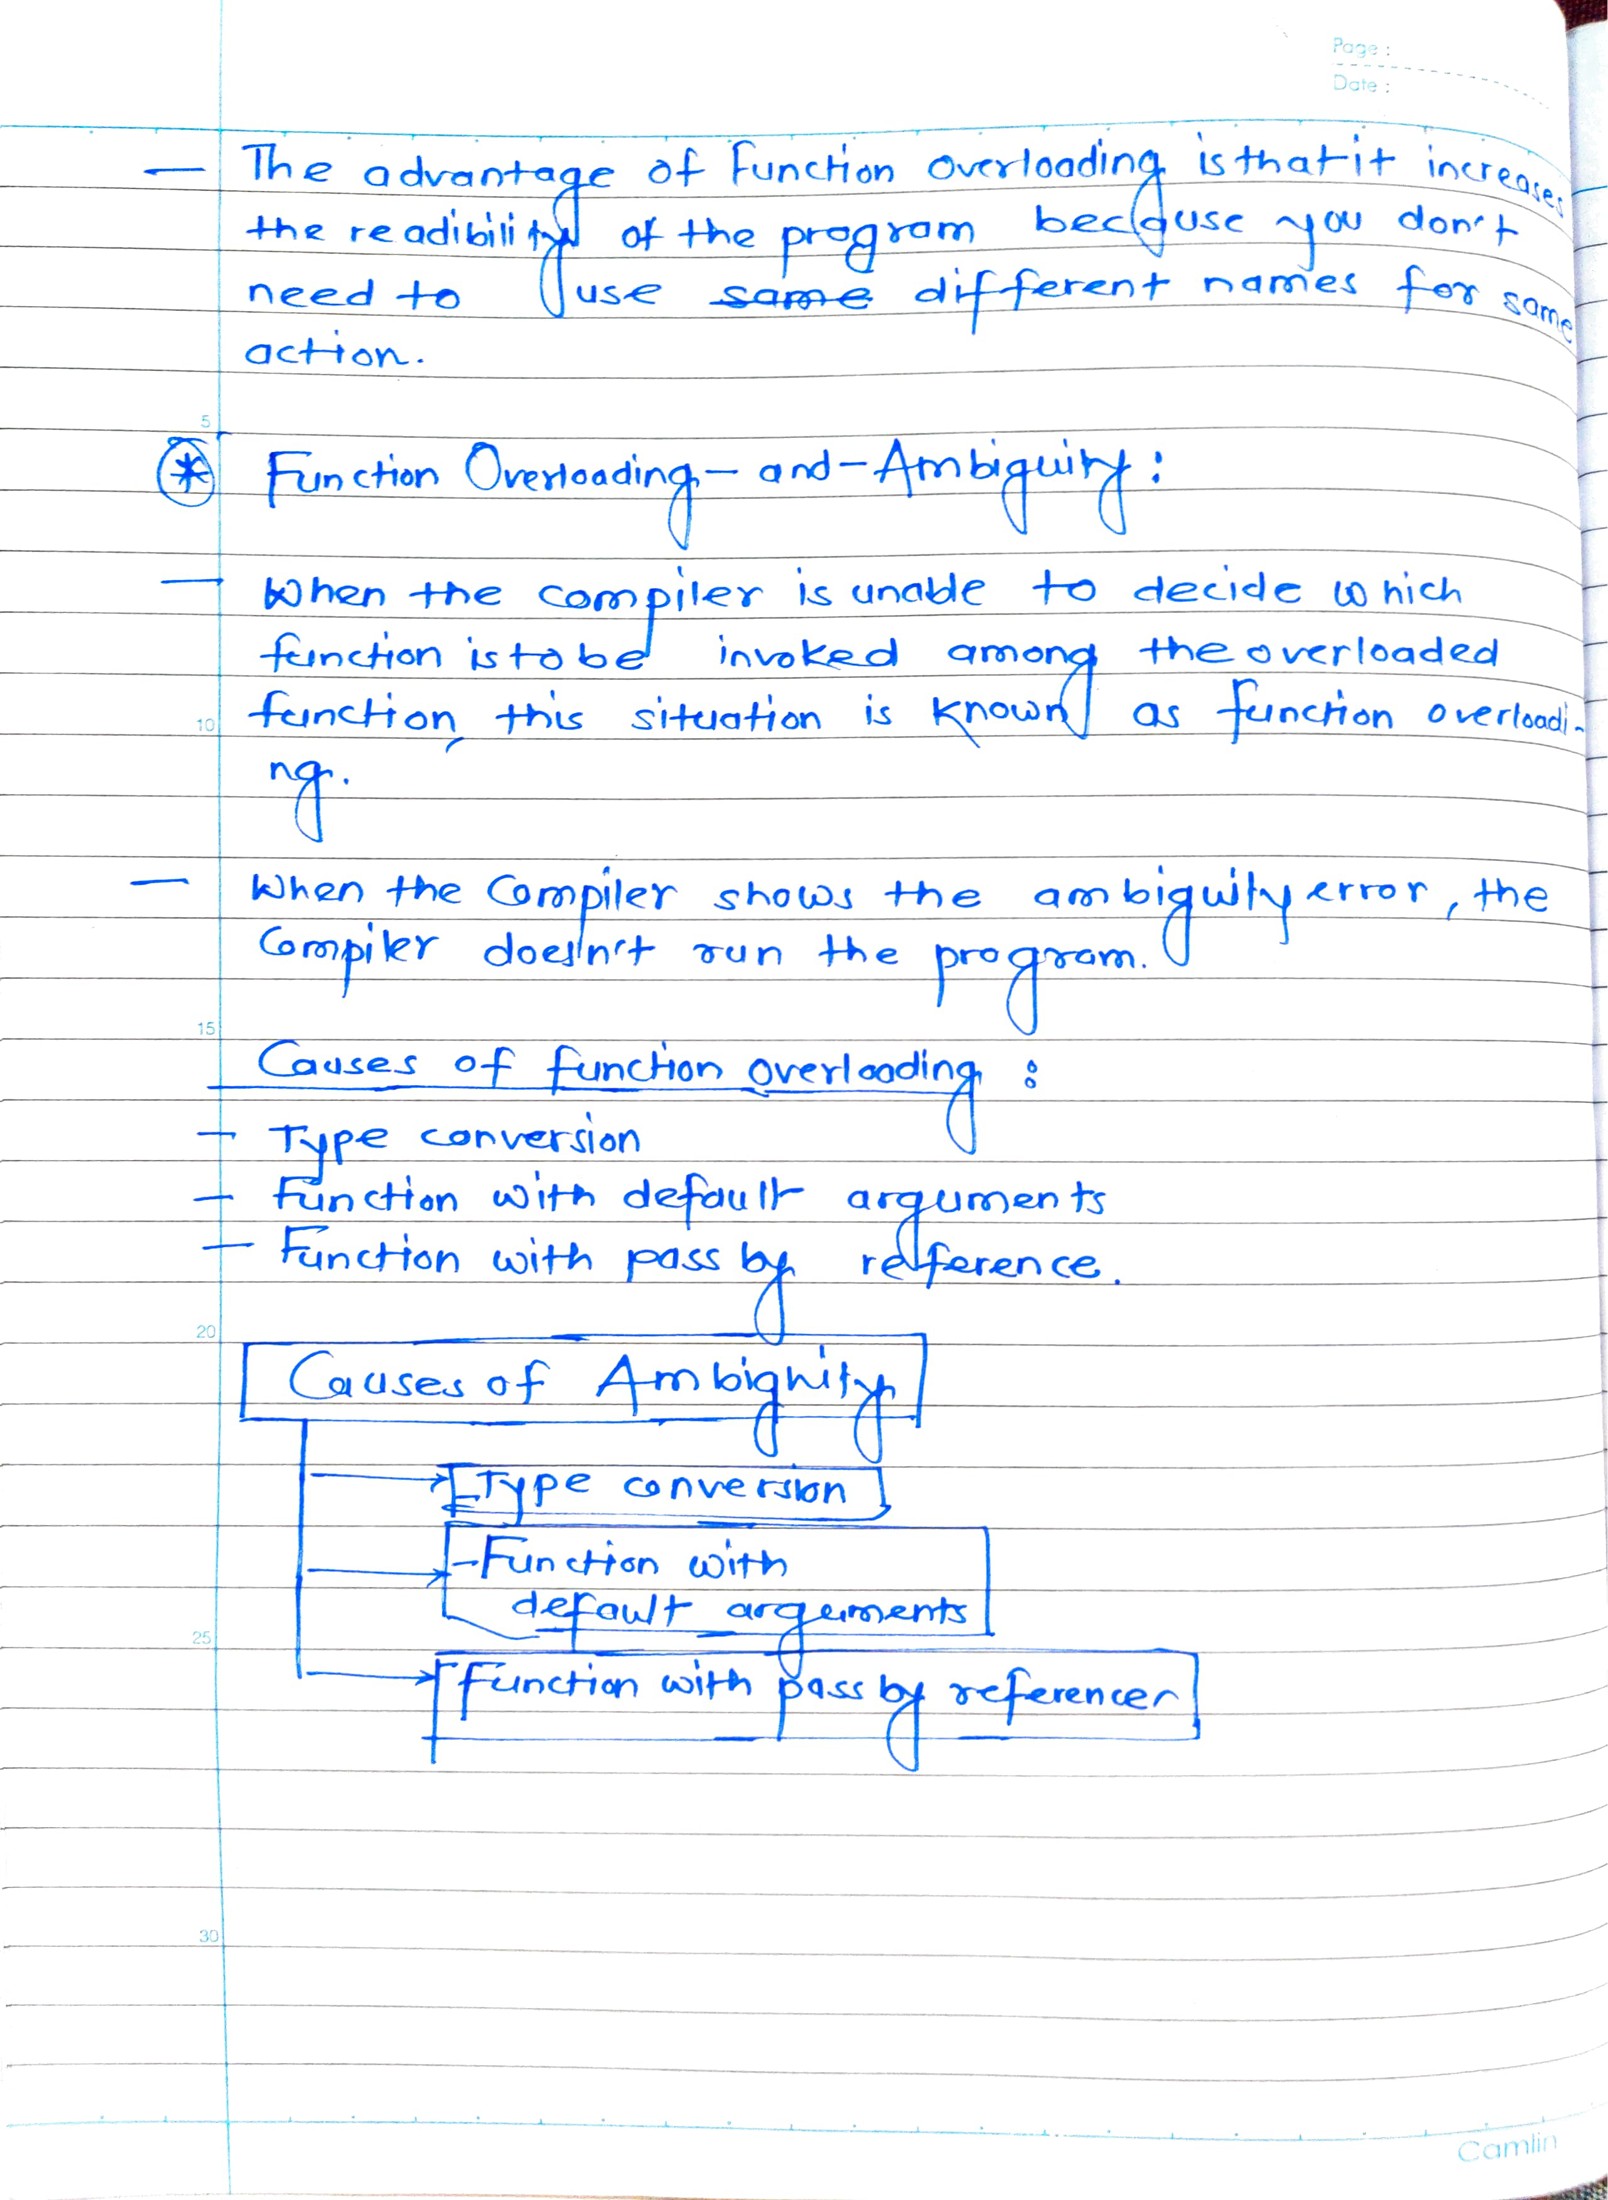 Page :
Date :
— The advantage of Function Overloading is that it increases
the readibility of the program because you don't
need to use same different names for same
action.
5
* Function Overloading-and-Ambiguity:
— When the compiler is unable to decide which
function is to be invoked among the overloaded
10
function, this situation is known as function overloadi-
ng.
— When the Compiler shows the ambiguity error, the
Compiler doesn't run the program.
15
Causes of function overloading :
- Type conversion
- Function with default arguments
- Function with pass by reference.
20
Causes of Ambiguity
Type conversion
-Function with
default arguments
25
Function with pass by referencer
30
Camlin